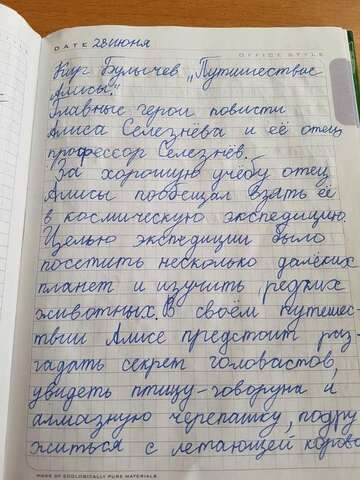 DATE 28 июня
OFFICE STYLE
Кир Булычев „Путишествие
Алисы"
Главные герои повисти
Алиса Селезнёва и её отец
профессор Селезнёв.
За хорошую учёбу отец
Алисы пообещал взять её
в космическую экспедицию.
Целью экспедиции было
посетить несколько далёких
планет и изучить редких
животных. В своём путешес-
твии Алисе предстоит раз-
гадать секрет головастов,
увидеть птицу-говоруна и
алмазную черепашку, подру-
житься с летающей корово
MADE OF ECOLOGICALLY PURE MATERIALS